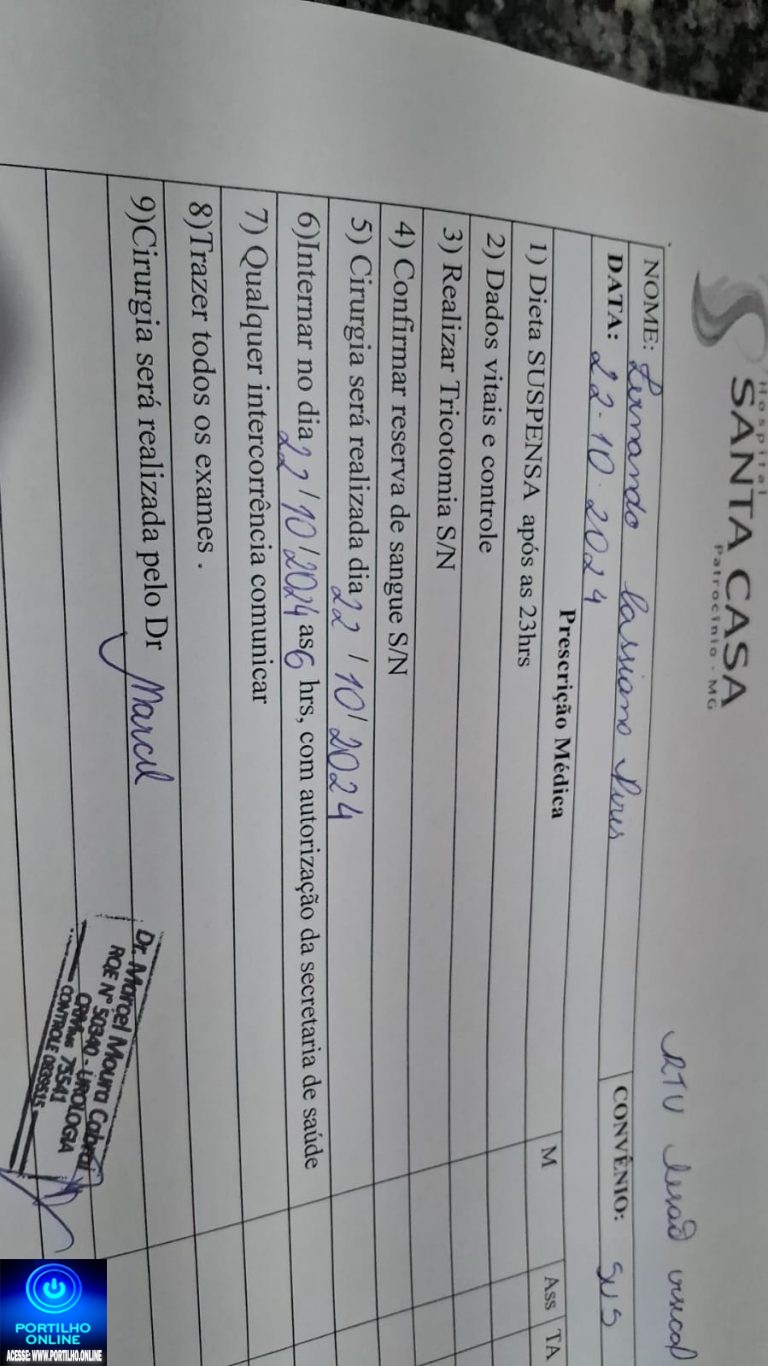 Hospital
SANTA CASA
Patrocínio - MG
RTU lesão vesical
NOME: Fernando Cassiano Pires
DATA: 22.10.2024 CONVÊNIO: SUS
Prescrição Médica M Ass TA
1) Dieta SUSPENSA após as 23hrs
2) Dados vitais e controle
3) Realizar Tricotomia S/N
4) Confirmar reserva de sangue S/N
5) Cirurgia será realizada dia 22/10/2024
6)Internar no dia 22/10/2024 as 6 hrs, com autorização da secretaria de saúde
7) Qualquer intercorrência comunicar
8)Trazer todos os exames .
9)Cirurgia será realizada pelo Dr Marcel
Dr. Marcel Moura Cabral
RQE Nº 50340 - UROLOGIA
CRMMG 75541
CONTROLE
PORTILHO
ONLINE
ACESSE: WWW.PORTILHO.ONLINE